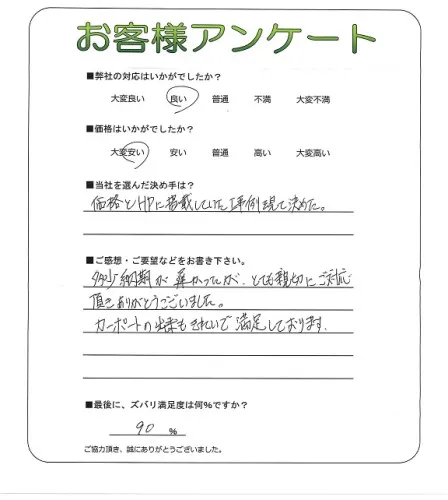 お客様アンケート
■弊社の対応はいかがでしたか？
大変良い 良い 普通 不満 大変不満
■価格はいかがでしたか？
大変安い 安い 普通 高い 大変高い
■当社を選んだ決め手は？
価格とHPに搭載していた工事例現て決めた。
■ご感想・ご要望などをお書き下さい。
多少納期が かかったが、とても親切にご対応
頂きありがとうございました。
カーポートの出来もきれいで満足しております。
■最後に、ズバリ満足度は何%ですか？
90 %
ご協力頂き、誠にありがとうございました。